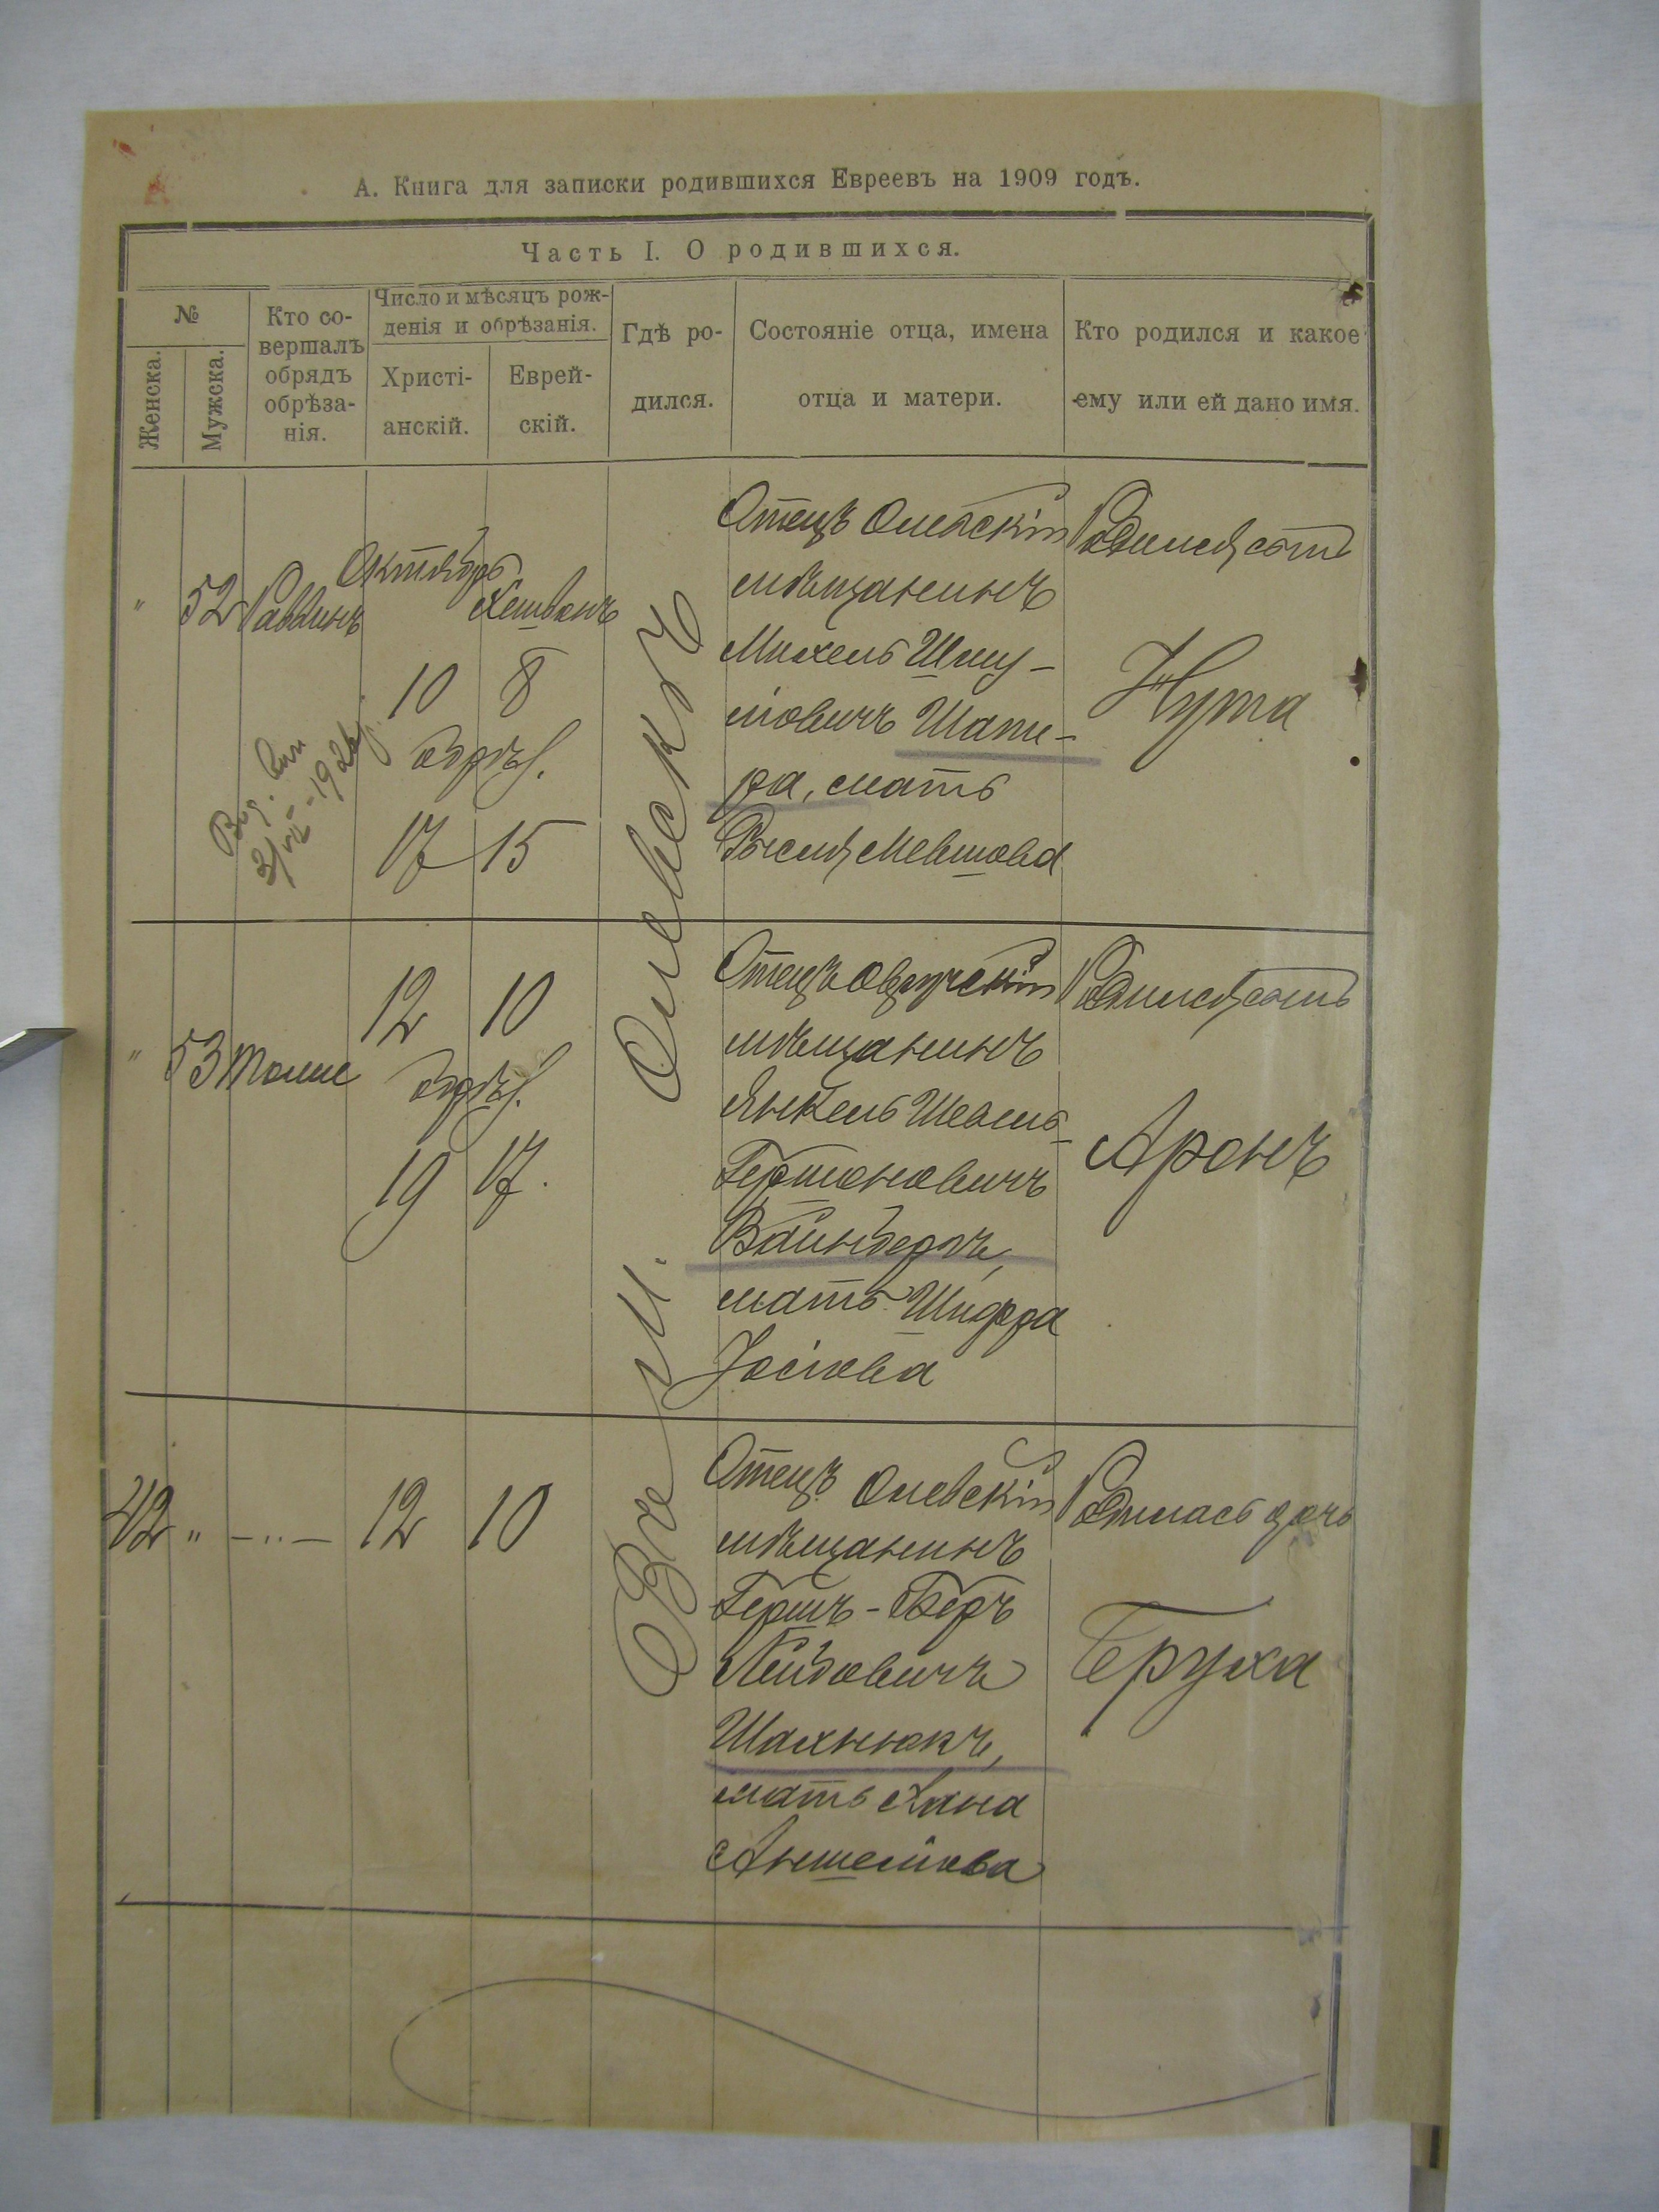 А. Книга для записки родившихся Евреевъ на 1909 годъ.
Часть I. О родившихся.
№
Женска.
Мужска.
Кто со-
вершалъ
обрядъ
обрѣза-
нія.
Число и мѣсяцъ рож-
денія и обрѣзанія.
Христі-
анскій.
Еврей-
скій.
Гдѣ ро-
дился.
Состояніе отца, имена
отца и матери.
Кто родился и какое
ему или ей дано имя.
" 52 Раввинъ
Октябрь
Хешванъ
10 8
обрѣз.
17 15
1926
Въ м. Олевскъ
Отецъ Олевскій
мѣщанинъ
Михель Шму-
ліовичъ Шапи-
ра, мать
Рысля Мевшова
Родился сынъ
Нута
" 53 Тоже
12 10
обрѣз.
19 17.
Отецъ Овручскій
мѣщанинъ
Янкель Шеель-
Гершоновичъ
Вайнберъ,
мать Шифра
Іосіова
Родился сынъ
Аронъ
42 " - .. - 12 10
Отецъ Олевскій
мѣщанинъ
Гершъ-Беръ
Лейбовичъ
Шахнюкъ,
мать Хана
Аншеліова
Родилась дочь
Бруха